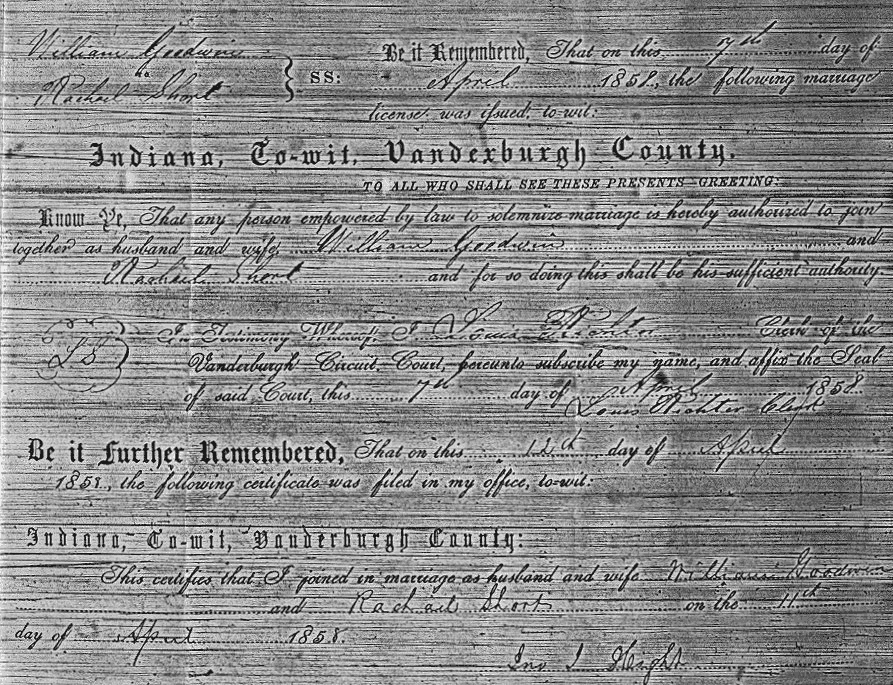 William Goodwin
Rachael Short
to
SS:
Be it Remembered, That on this 7th day of
April 1858, the following marriage
license was issued, to-wit:
Indiana, To-wit, Vanderburgh County.
TO ALL WHO SHALL SEE THESE PRESENTS—GREETING:
Know Ye, That any person empowered by law to solemnize marriage is hereby authorized to join
together as husband and wife, William Goodwin and
Rachael Short and for so doing this shall be his sufficient authority.
L S
In Testimony Whereof, I, Louis Richter Clerk of the
Vanderburgh Circuit Court, hereunto subscribe my name, and affix the Seal
of said Court, this 7th day of April 1858
Louis Richter Clerk
Be it Further Remembered, That on this 12th day of April
1858, the following certificate was filed in my office, to-wit:
Indiana, To-wit, Vanderburgh County:
This certifies that I joined in marriage as husband and wife William Goodwin
and Rachael Short on the 11th
day of April 1858.
Jno J Hight